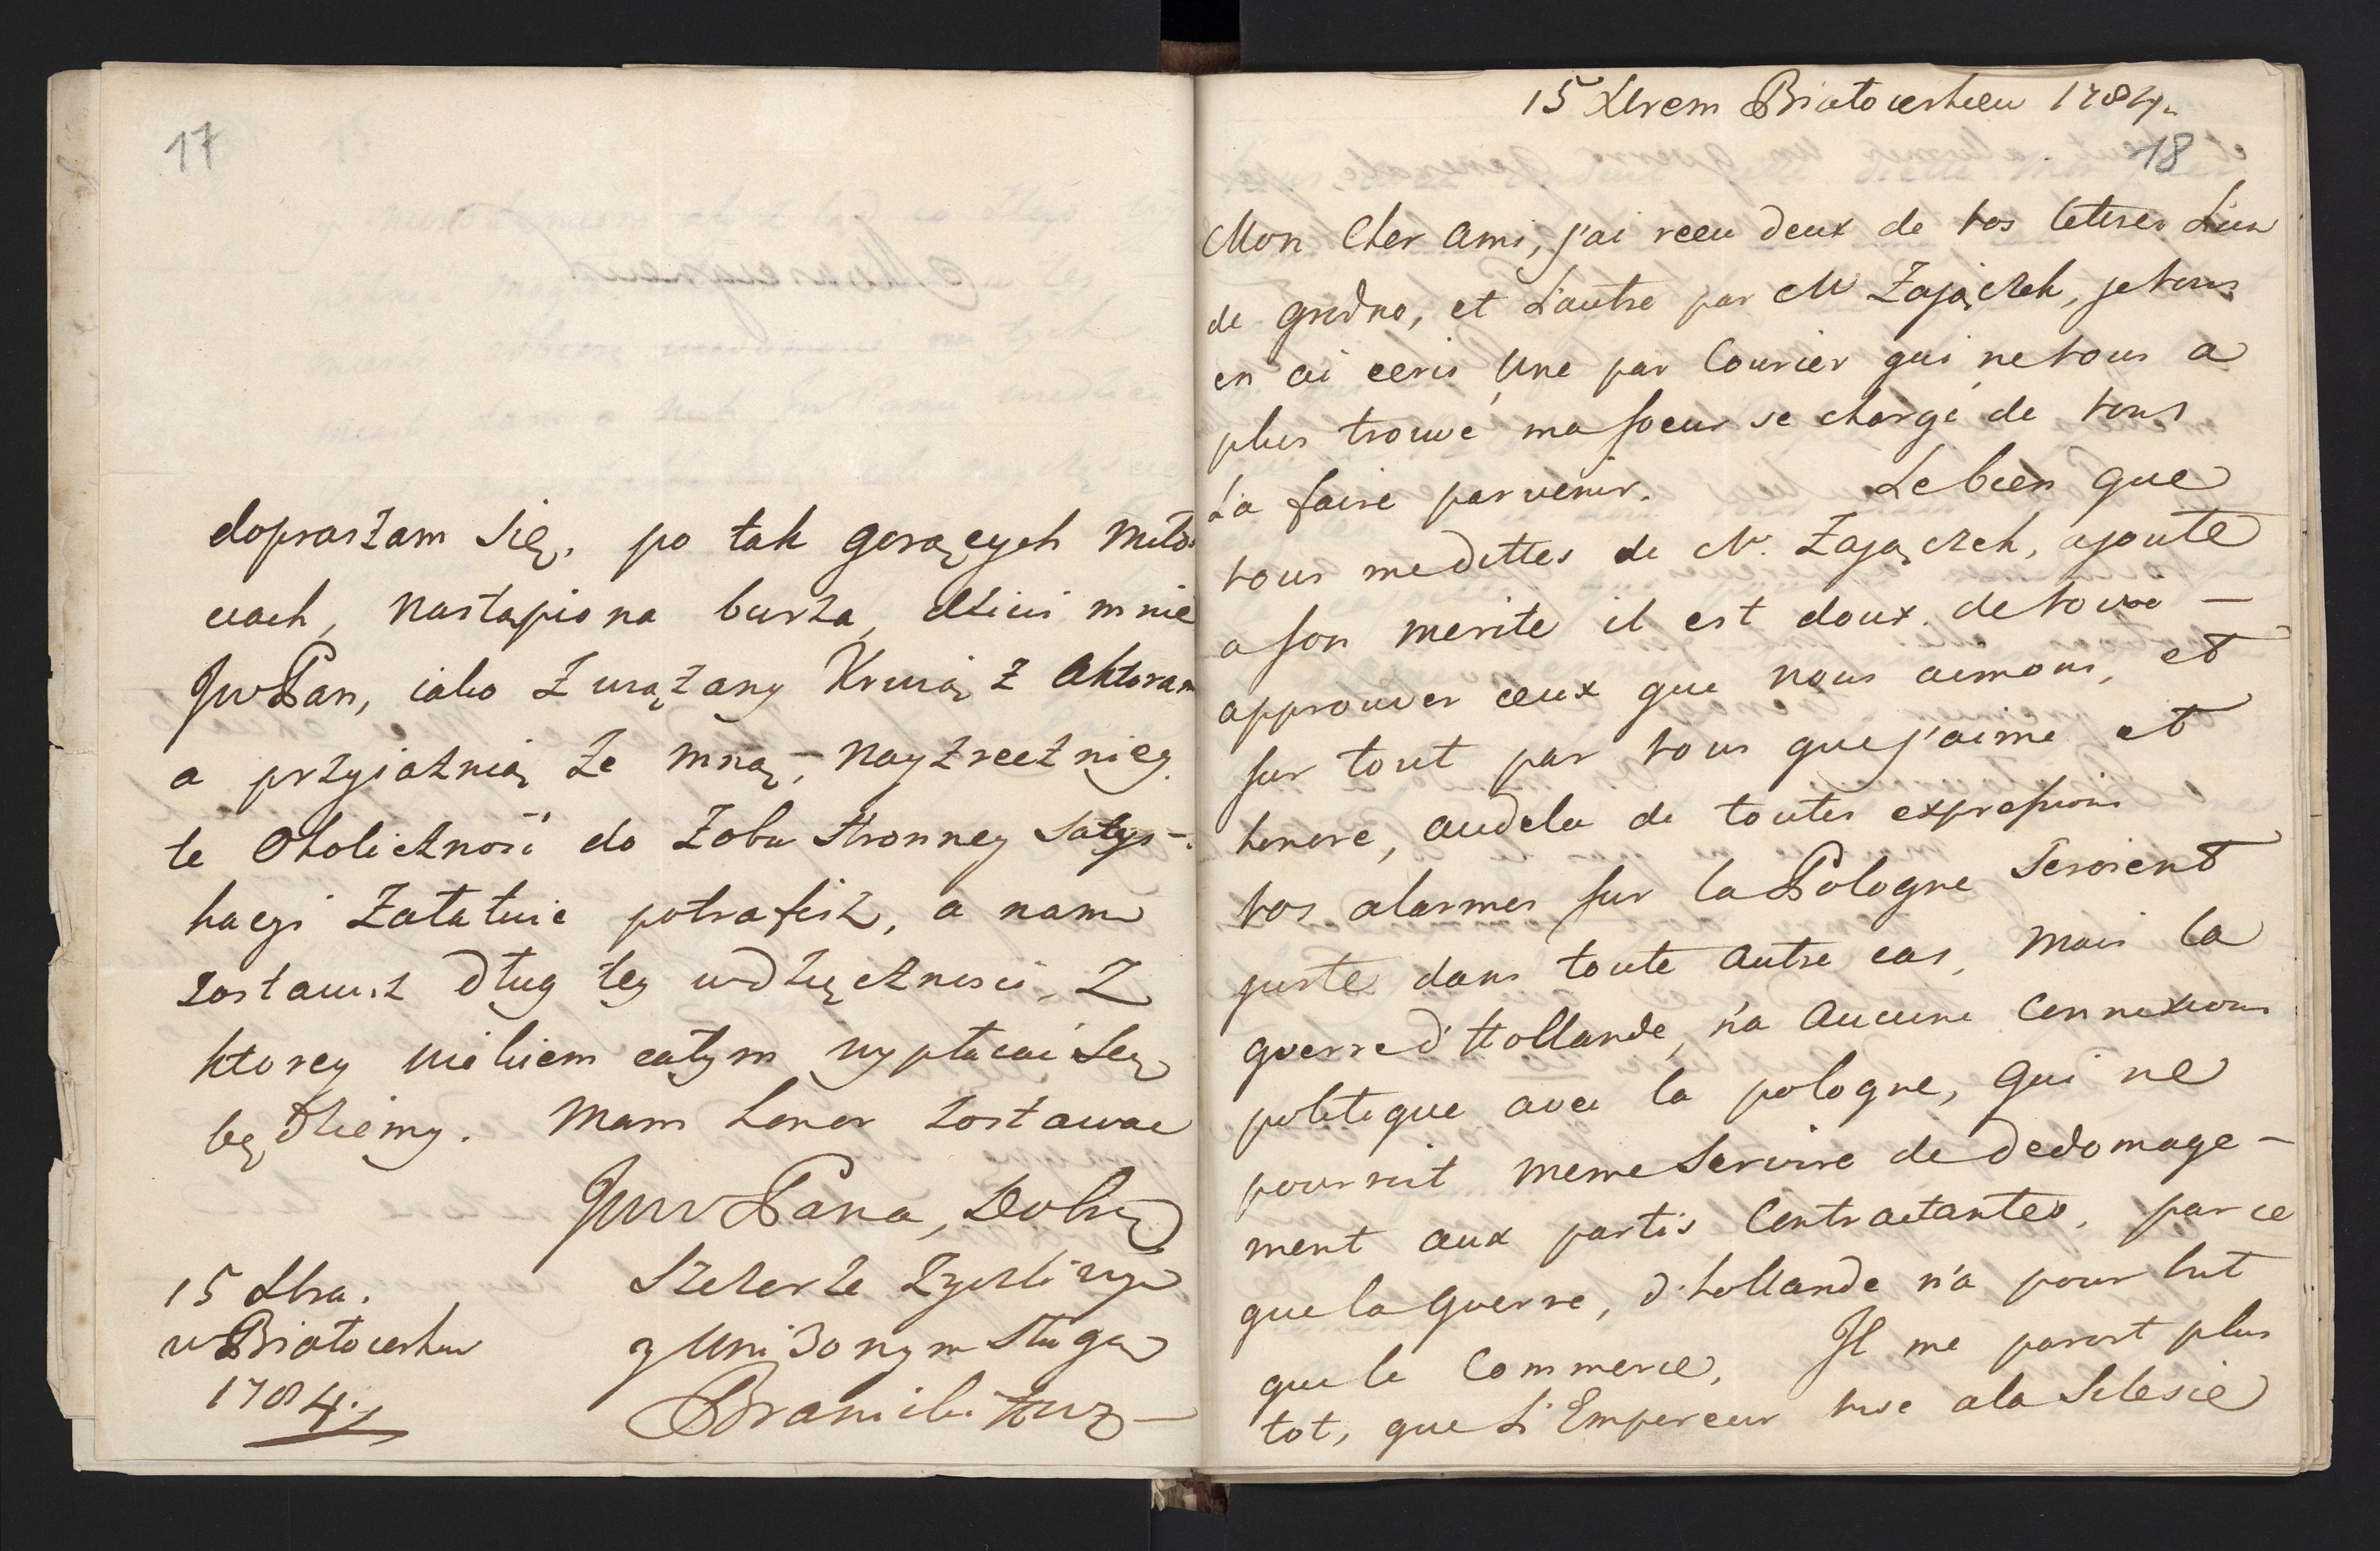 17
dopraszam Się, po tak gorących miłos
ciach, nastąpiona burza, dziś mnie
JwPan, iako Związany Krwią z Aktoram
a przyiaźnią Ze mną, nayzręczniey
te Okoliczność do Zobu Stronney Satys-
hacyi Załatwić potrafisz, a nam
zostawisz dług tey wdzięcznosci, Z
ktorey wiekiem całym wypłacać Się
będziemy. Mam honor zostawac
JWW Pana, Dobro
Szczerze Zyczliwym
y Uniżonym Sługą
Branicki
15 Xbra.
w Białocerkw
1784.
15 Xbrem Białocerkiew 1784.
18
Mon Cher ami, j'ai receu deux de vos lettres L'un
de grodno, et L'autre par M Zajączek, je vous
en ai ecris une par Courier qui ne vous a
plus trouvé ma soeur se chargé de vous
La faire parvenir. Le bien que
vous me dittes de M. Zajączek, ajoute
a son merite il est doux de
approuver ceux que nous aimons, et
sur tout par vous que j'aime et
honore, audela de toutes expressions
vos alarmes sur la Pologne Seroient
juste dans toute autre cas, mais la
guerre d'Hollande, n'a aucune Connexions
politique avec la pologne, qui ne
pourroit meme Servire de dedomage-
ment aux partis Contractantes, par ce
que la Guerre, d'hollande n'a pour but
que le Commerce, Il me paroit plus
tot, que L'Empereur vise a la Silesie